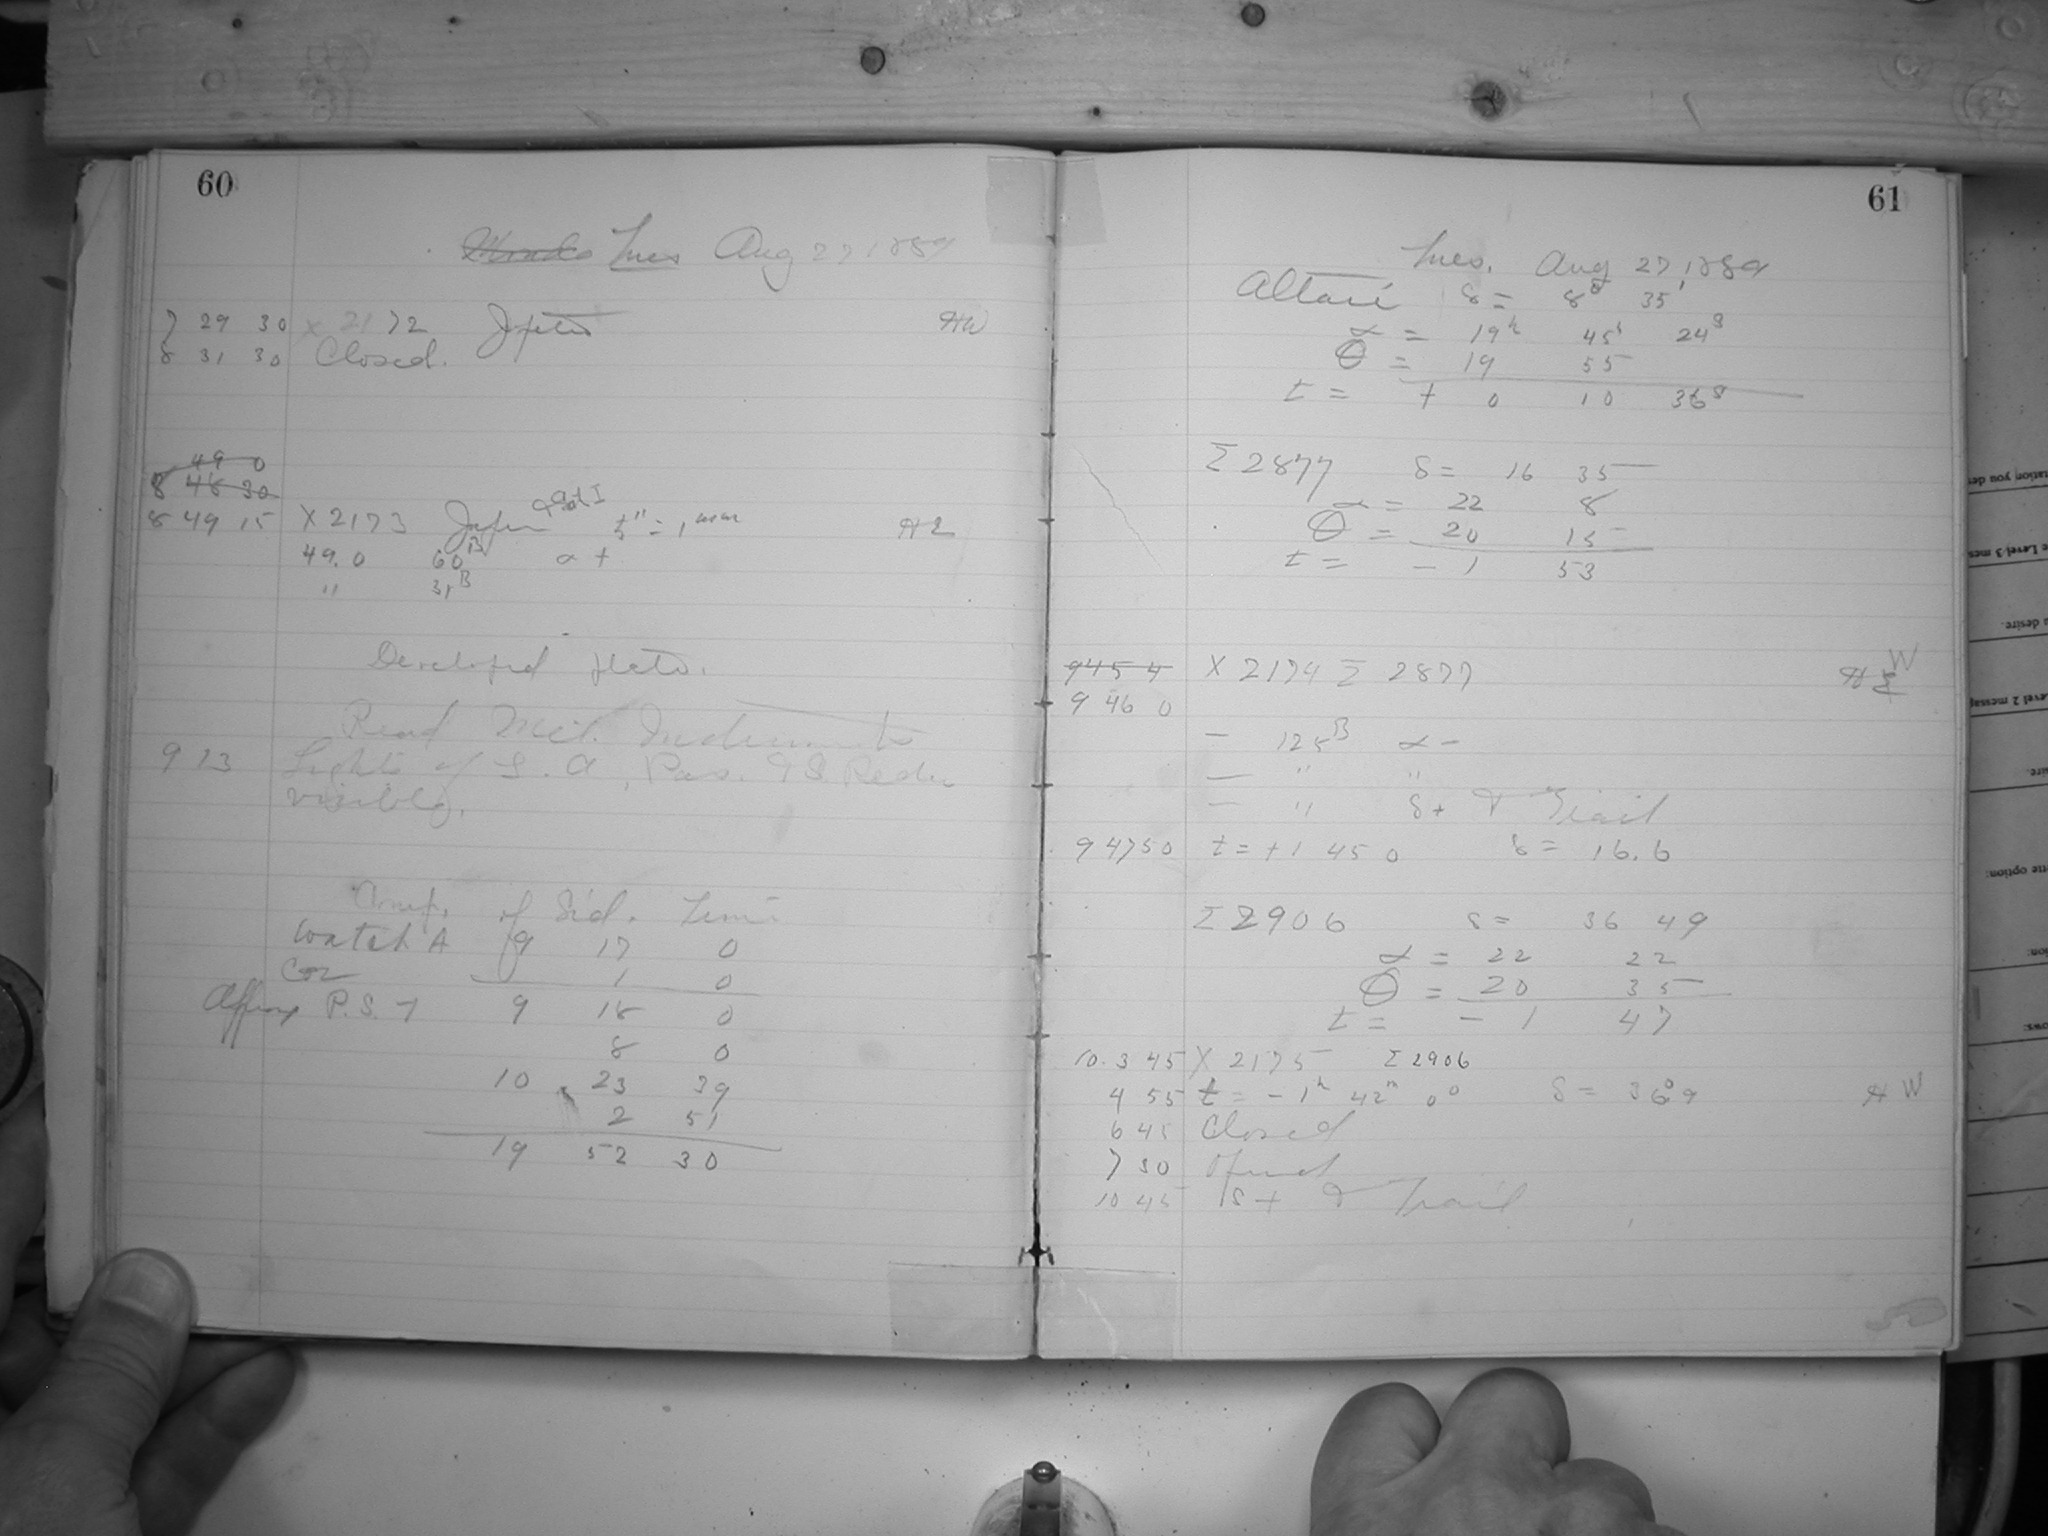 60
Tues Aug 27, 1889
7 29 30 X 2172 Jupiter HW
8 31 30 Closed.
49 0
8 48 30
8 49 15 X 2173 Jupiter & Sat I = 1 mm
49.0 60B α +
" 31B
Developed plate.
Read Met. Instruments
9 13 Lights of L. A, Pas. & S. Redn
visible.
Comp. of Sid. Time
Watch A 9 17 0
Cor 1 0
Approx P.S.T 9 18 0
8 0
10 23 39
2 51
19 52 30
61
Tues. Aug 27, 1889
Altair δ = 8° 35'
α = 19h 45 24s
θ = 19 55
t = + 0 10 36s
Σ 2877 δ = 16 35
α = 22 8
θ = 20 15
t = - 1 53
945 4 X 2174 Σ 2877 H W
9 46 0
— 125B α -
— " "
— " δ + & Trail
9 47 50 t = + 1 45 0 δ = 16.6
Σ 2906 δ = 36 49
α = 22 22
θ = 20 35
t = - 1 47
10. 3 45 X 2175 Σ 2906
4 55 t = - 1h 42m 0 δ = 36°9 HW
6 45 Closed
7 30 Opened
10 45 δ + & Trail
tation you des
e Level 3 mes
s desire.
Level 2 messag
ire.
tte option:
ion:
ows: